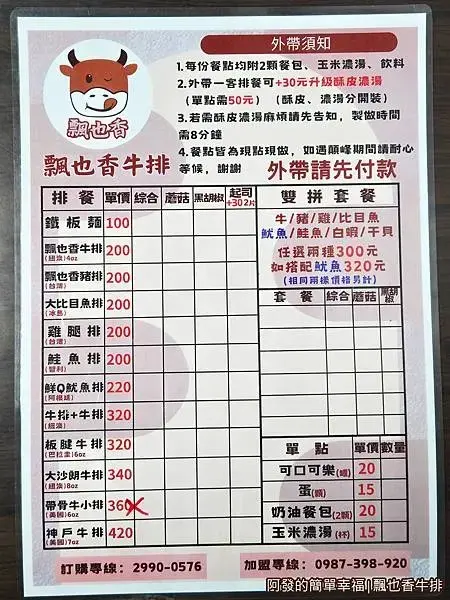 飄也香
飄也香牛排
外帶須知
1.每份餐點均附2顆餐包、玉米濃湯、飲料
2.外帶一客排餐可+30元升級酥皮濃湯
(單點需50元)(酥皮、濃湯分開裝)
3.若需酥皮濃湯麻煩請先告知,製做時間
需8分鐘
4.餐點皆為現點現做,如遇顛峰期間請耐心
等候,謝謝
外帶請先付款
排餐 單價 綜合 蘑菇 黑胡椒 起司+302片
鐵板麵 100
飄也香牛排 200
(紐澳)4oz
飄也香豬排 200
(台灣)
大比目魚排 200
(冰島)
雞腿排 200
(台灣)
鮭魚排 200
(智利)
鮮Q魷魚排 220
(阿根廷)
牛排+牛排 320
(紐澳)
板腱牛排 320
(巴拉圭)6oz
大沙朗牛排 340
(紐澳)8oz
帶骨牛小排 360
(美國)6oz
神戶牛排 420
(美國)7oz
雙拼套餐
牛/豬/雞/比目魚
魷魚/鮭魚/白蝦/干貝
任選兩種300元
如搭配魷魚320元
(相同兩樣價格另計)
套餐 綜合 蘑菇 黑胡椒
單點 單價 數量
可口可樂(罐) 20
蛋(顆) 15
奶油餐包(2顆) 20
玉米濃湯(杯) 15
訂購專線:2990-0576
加盟專線:0987-398-920
阿發的簡單幸福|飄也香牛排